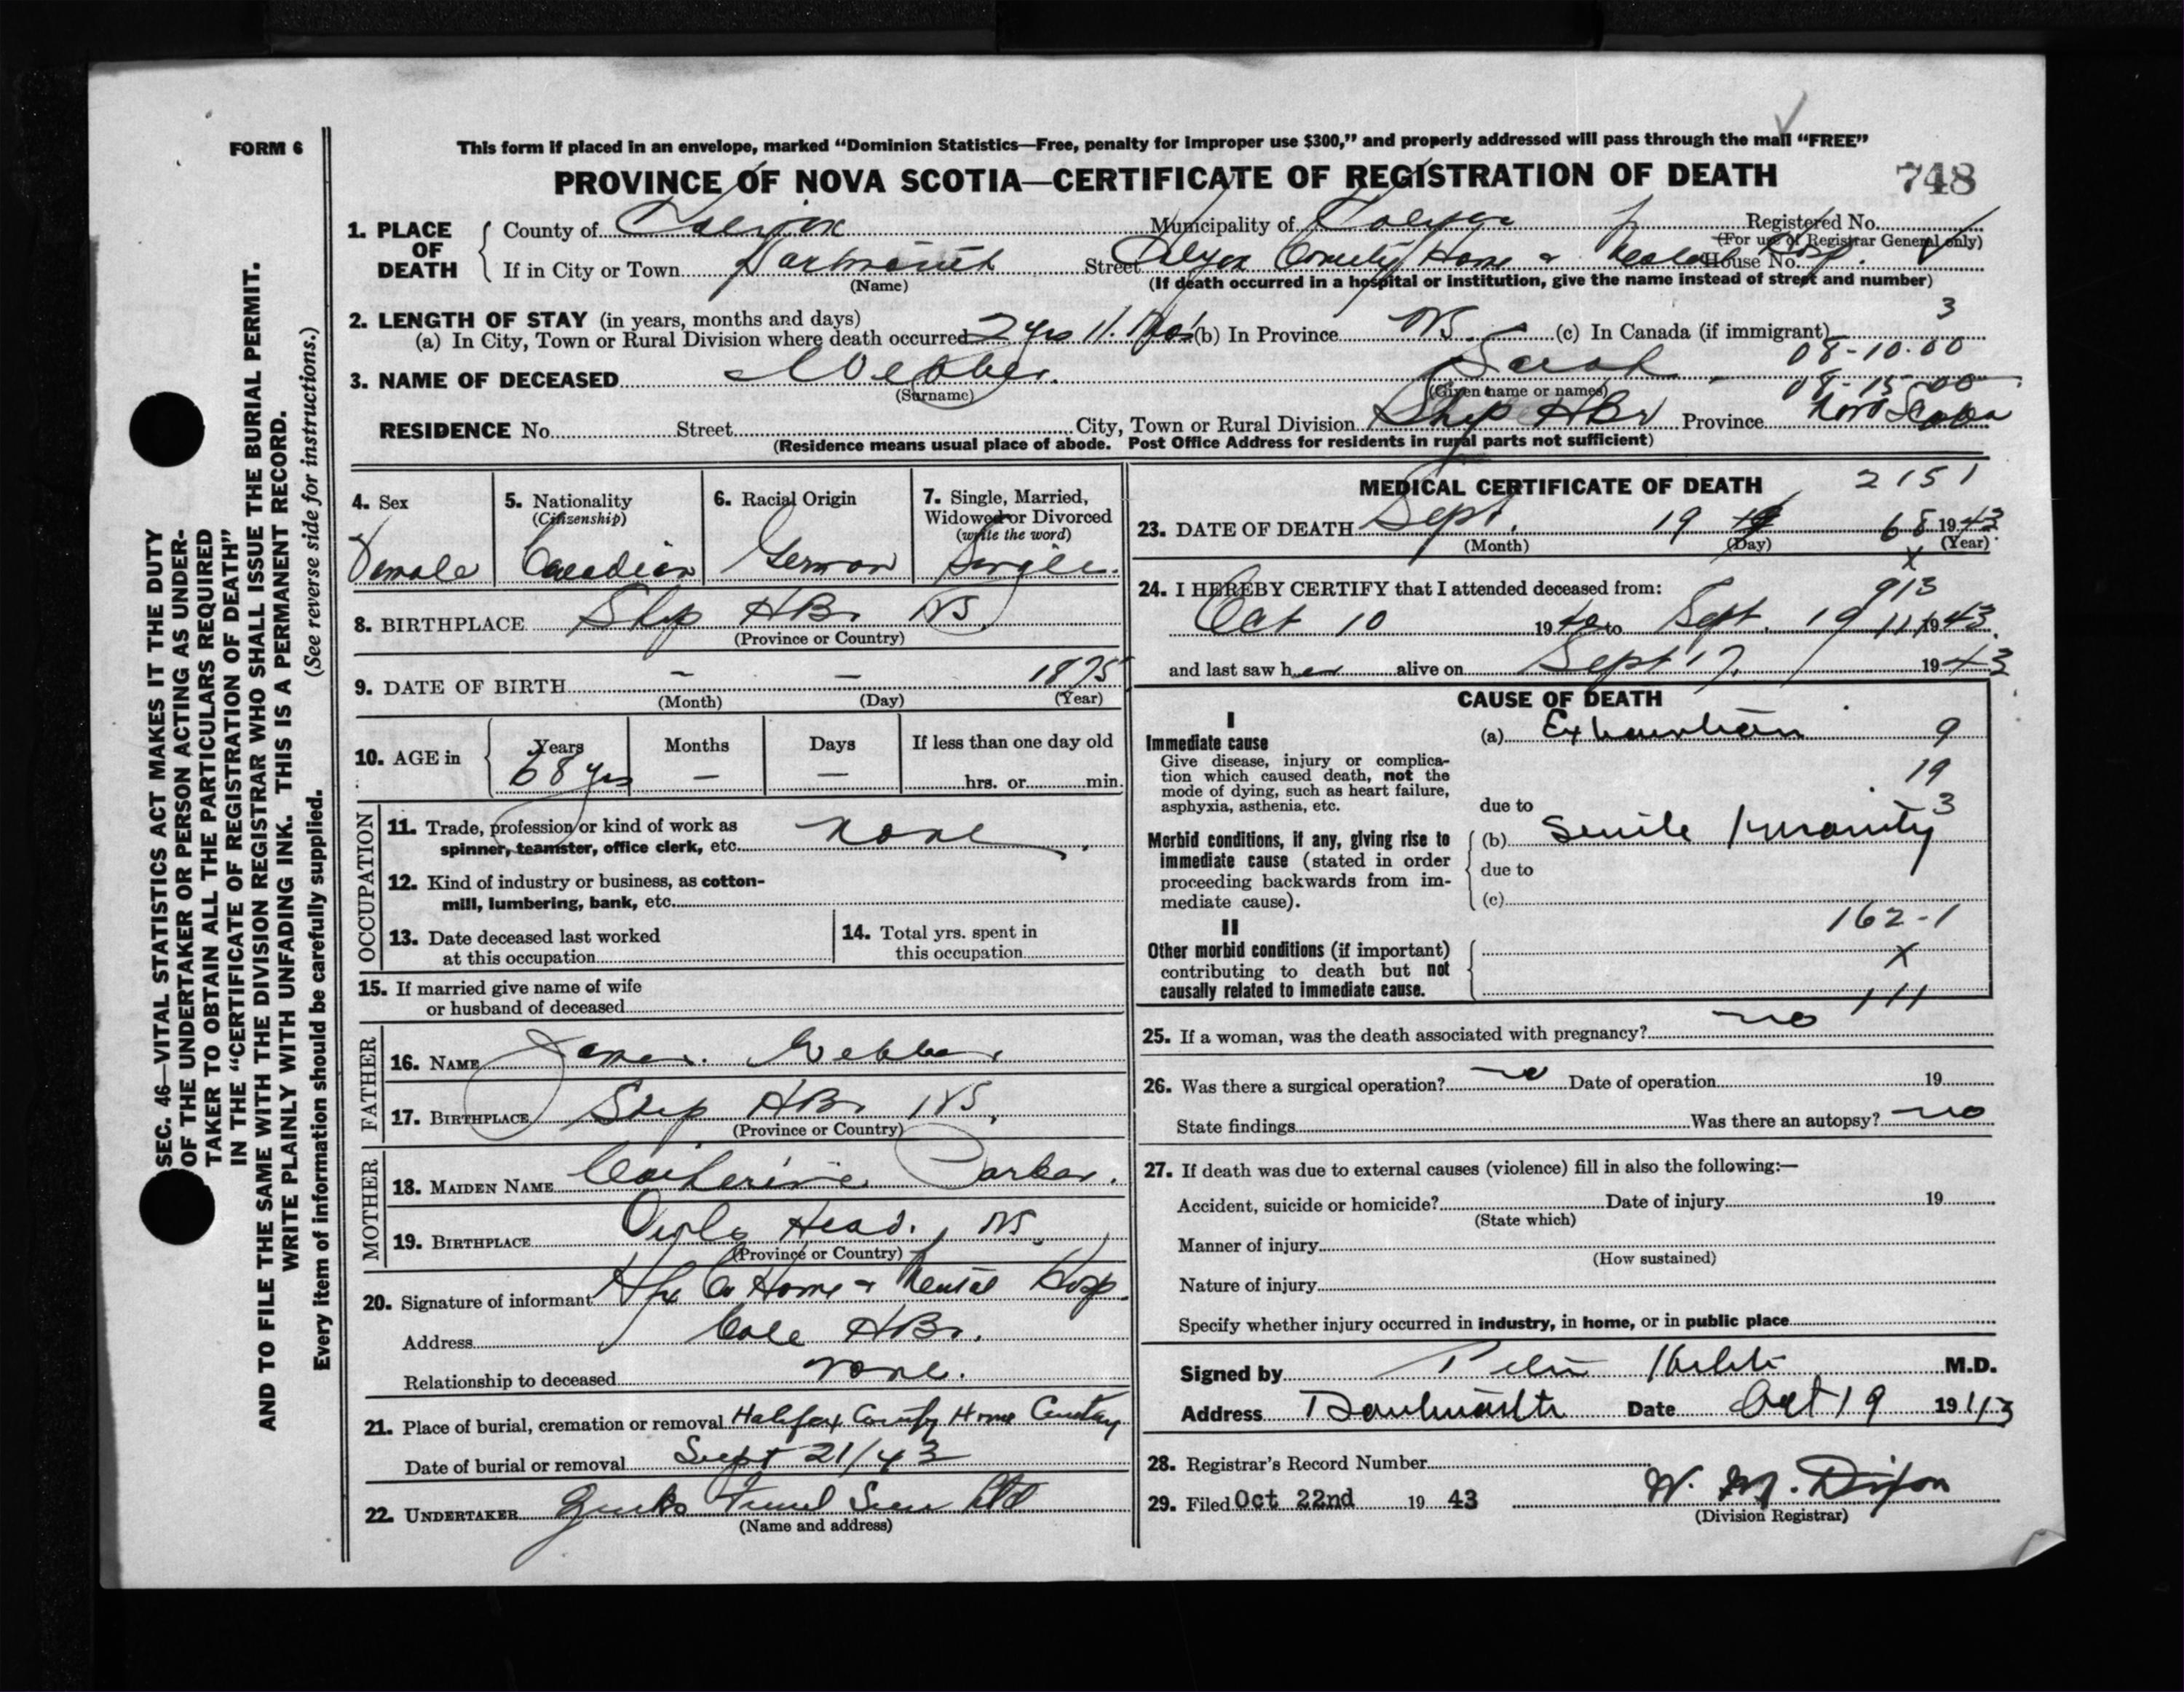 FORM 6
This form if placed in an envelope, marked “Dominion Statistics—Free, penalty for improper use $300,” and properly addressed will pass through the mail “FREE”
PROVINCE OF NOVA SCOTIA—CERTIFICATE OF REGISTRATION OF DEATH 748
1. PLACE OF DEATH
County of Halifax Municipality of Halifax Registered No.
(For use of Registrar General only)
If in City or Town Dartmouth Street Halifax County Home & Mental Hosp. House No.
(Name) (If death occurred in a hospital or institution, give the name instead of street and number)
2. LENGTH OF STAY (in years, months and days) 3
(a) In City, Town or Rural Division where death occurred 2 yrs 11. Mos (b) In Province NS. (c) In Canada (if immigrant)
08-10-00
3. NAME OF DECEASED Webber. Sarah
(Surname) (Given name or names)
08-15-00
RESIDENCE No. Street City, Town or Rural Division Ship HBr Province Nova Scotia
(Residence means usual place of abode. Post Office Address for residents in rural parts not sufficient)
4. Sex
Female
5. Nationality
(Citizenship)
Canadian
6. Racial Origin
German
7. Single, Married,
Widowed or Divorced
(write the word)
Single.
8. BIRTHPLACE Ship HBr NS
(Province or Country)
9. DATE OF BIRTH — — 1875
(Month) (Day) (Year)
10. AGE in
Years Months Days If less than one day old
68 yrs — — hrs. or min.
OCCUPATION
11. Trade, profession or kind of work as
spinner, teamster, office clerk, etc. none.
12. Kind of industry or business, as cotton-
mill, lumbering, bank, etc.
13. Date deceased last worked
at this occupation
14. Total yrs. spent in
this occupation
15. If married give name of wife
or husband of deceased
FATHER
16. NAME Webber
17. BIRTHPLACE Ship HBr NS.
(Province or Country)
MOTHER
18. MAIDEN NAME Catherine Parker.
19. BIRTHPLACE Owls Head. NS.
(Province or Country)
20. Signature of informant Hfx Co Home & Mental Hosp.
Address Cole HBr.
Relationship to deceased none.
21. Place of burial, cremation or removal Halifax County Home Cemetery
Date of burial or removal Sept 21/43
22. UNDERTAKER Ltd
(Name and address)
MEDICAL CERTIFICATE OF DEATH 2151
23. DATE OF DEATH Sept. 19 68 1943
(Month) (Day) (Year)
x
24. I HEREBY CERTIFY that I attended deceased from:
913
Oct 10 1940 to Sept. 19 11 1943.
and last saw her alive on Sept 17. 1943
CAUSE OF DEATH
I
Immediate cause
Give disease, injury or complica-
tion which caused death, not the
mode of dying, such as heart failure,
asphyxia, asthenia, etc.
(a) Exhaustion 9
19
due to 3
Morbid conditions, if any, giving rise to
immediate cause (stated in order
proceeding backwards from im-
mediate cause).
(b) Senile Insanity
due to
(c)
162-1
II
Other morbid conditions (if important)
contributing to death but not
causally related to immediate cause.
x
111
25. If a woman, was the death associated with pregnancy? no
26. Was there a surgical operation? no Date of operation 19
State findings Was there an autopsy? no
27. If death was due to external causes (violence) fill in also the following:—
Accident, suicide or homicide? Date of injury 19
(State which)
Manner of injury
(How sustained)
Nature of injury
Specify whether injury occurred in industry, in home, or in public place
Signed by M.D.
Address Dartmouth Date Oct 19 1943
28. Registrar's Record Number
29. Filed Oct 22nd 19 43 W. M. Dixon
(Division Registrar)
SEC. 46—VITAL STATISTICS ACT MAKES IT THE DUTY
OF THE UNDERTAKER OR PERSON ACTING AS UNDER-
TAKER TO OBTAIN ALL THE PARTICULARS REQUIRED
IN THE “CERTIFICATE OF REGISTRATION OF DEATH”
AND TO FILE THE SAME WITH THE DIVISION REGISTRAR WHO SHALL ISSUE THE BURIAL PERMIT.
WRITE PLAINLY WITH UNFADING INK. THIS IS A PERMANENT RECORD.
(See reverse side for instructions.)
Every item of information should be carefully supplied.